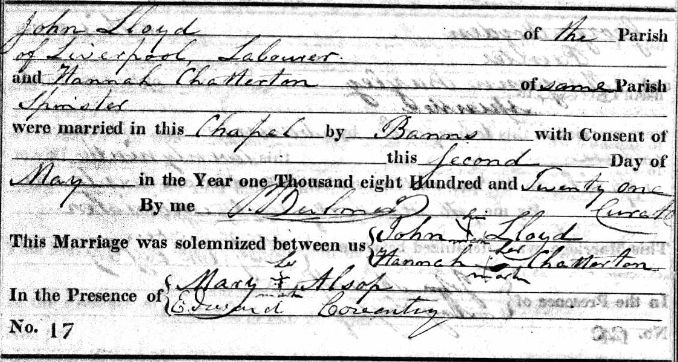 John Lloyd of the Parish
of Liverpool, Labourer
and Hannah Chatterton of same Parish
Spinster
were married in this Chapel by Banns with Consent of
this second Day of
May in the Year one Thousand eight Hundred and Twenty one
By me Curate
This Marriage was solemnized between us { John his X Lloyd
Hannah her mark Chatterton
In the Presence of { Mary her X mark Alsop
Edward Coventry
No. 17